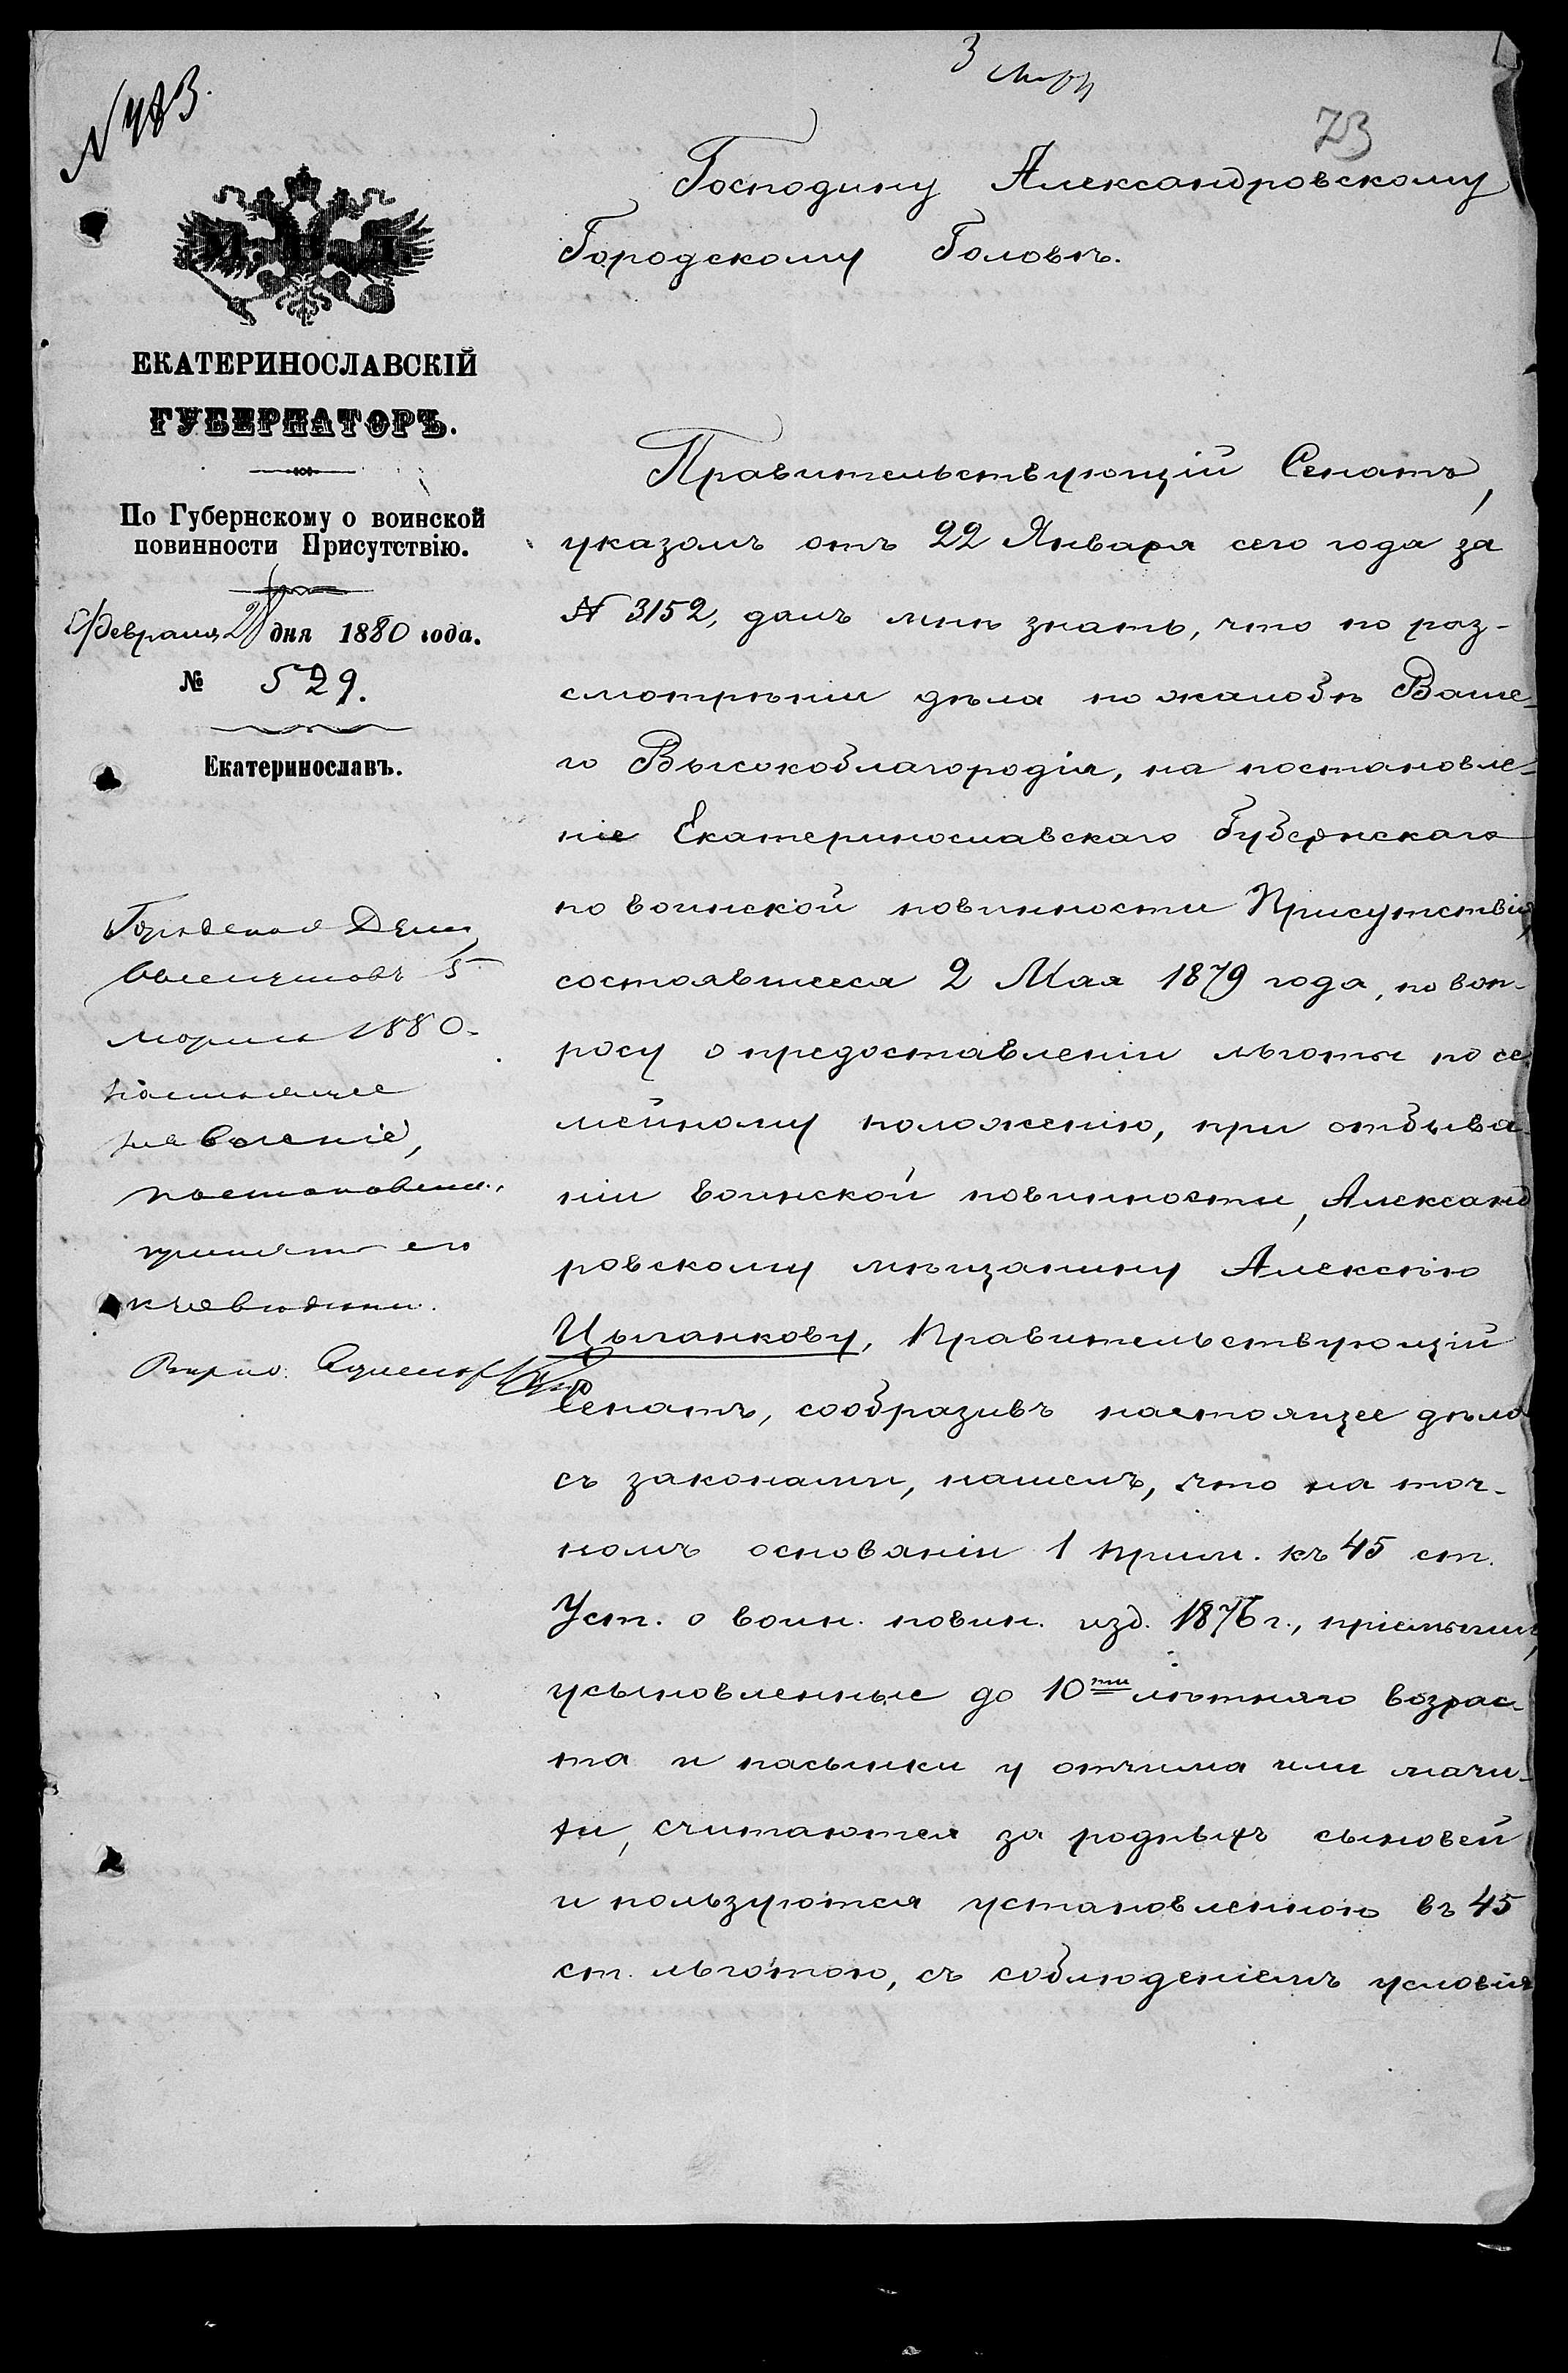 N 483.
3 Мар
73
ЕКАТЕРИНОСЛАВСКІЙ
ГУБЕРНАТОРЪ.
По Губернскому о воинской
повинности Присутствію.
Февраля 28 дня 1880 года.
№ 529.
Екатеринославъ.
Господину Александровскому
Городскому Головѣ.
Правительствующій Сенатъ,
указомъ отъ 22 Января сего года за
N 3152, далъ мнѣ знать, что по раз-
смотрѣніи дѣла по жалобѣ Ваше-
го Высокоблагородія, на постановле-
ніе Екатеринославскаго Губернскаго
по воинской повинности Присутствія,
состоявшееся 2 Мая 1879 года, по воп-
росу о предоставленіи льготы по се
мейному положенію, при отбыва-
ніи воинской повинности, Александ
ровскому мѣщанину Алексѣю
Цыганкову, Правительствующій
Сенатъ, сообразивъ настоящее дѣло
съ законами, нашелъ, что на точ-
номъ основаніи 1 прим. къ 45 ст.
Уст. о воин. повин. изд. 1876 г., пріемыши,
усыновленные до 10ти лѣтняго возрас-
та и пасынки у отчима или мачи-
хи, считаются за родныхъ сыновей
и пользуются установленною въ 45
ст. льготою, съ соблюденіемъ условія
Городская Дума,
5
марта 1880.
настоящее
постановила:
принять его
къ свѣдѣнію.